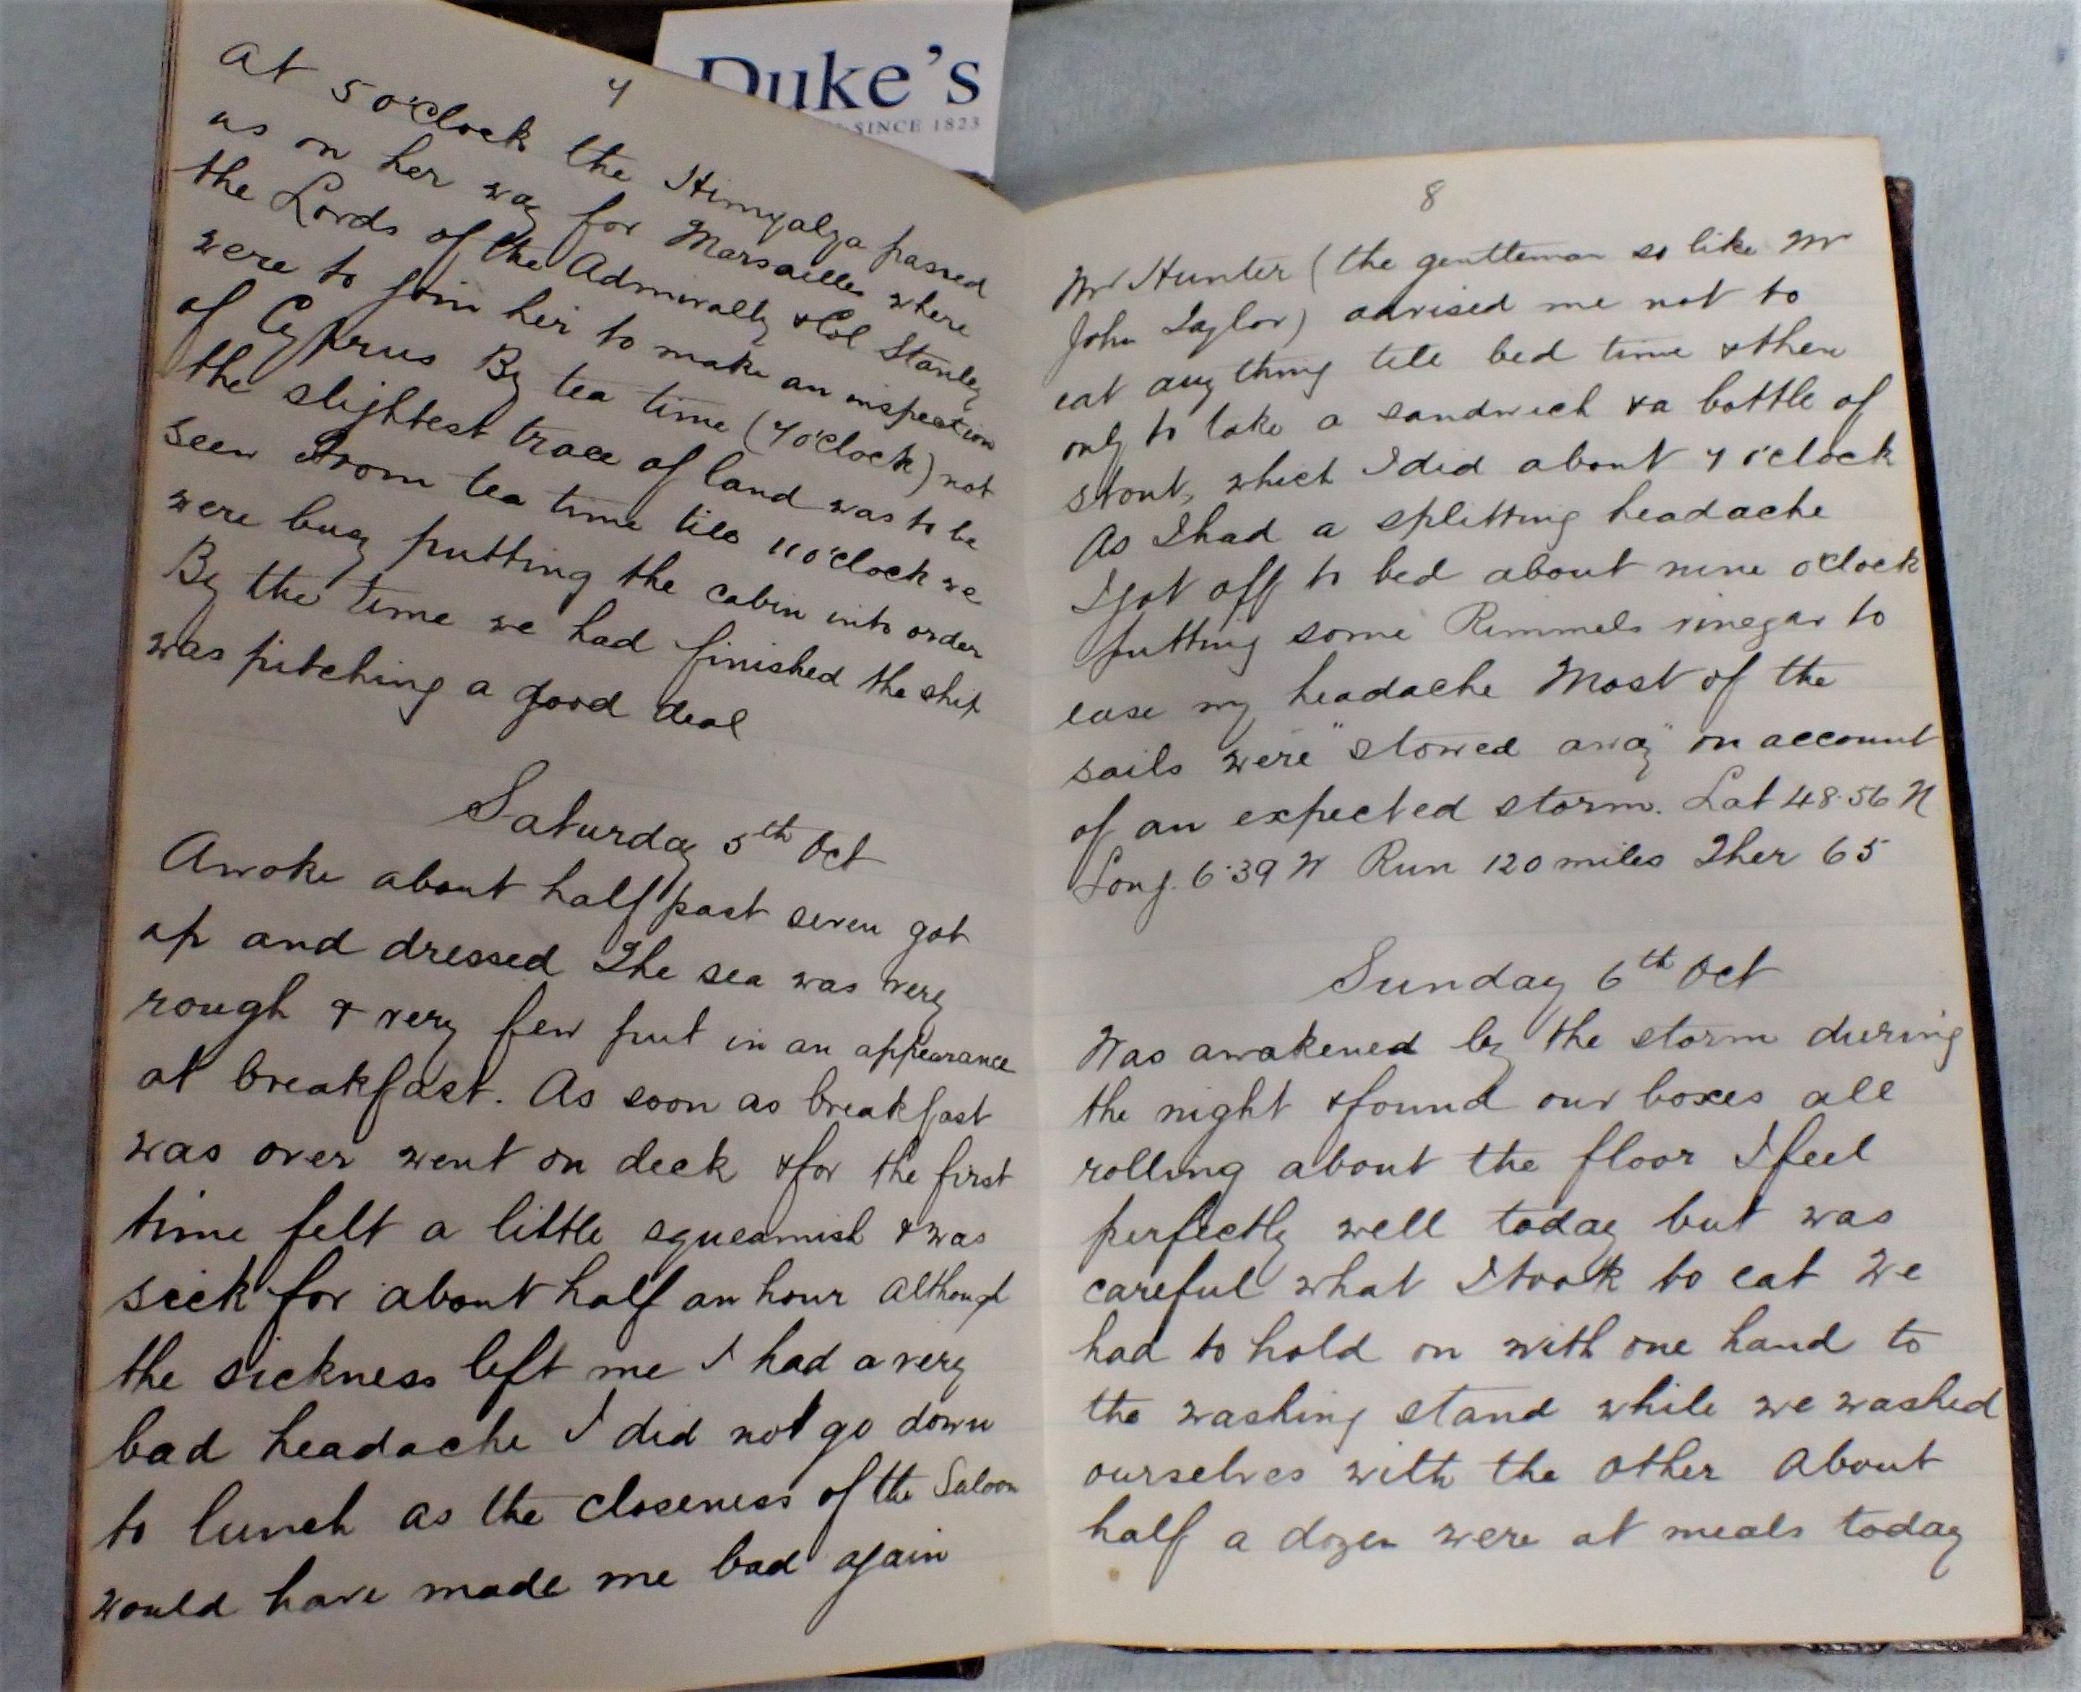 Duke's
SINCE 1823
7
at 5 o'Clock the Himyalya passed
us on her way for Marsailles where
the Lords of the Admiralty & Col Stanley
were to join her to make an inspection
of Cyprus By tea time (7 o'clock) not
the slightest trace of land was to be
seen From tea time till 11 o'clock we
were busy putting the cabin into order
By the time we had finished the ship
was pitching a good deal
Saturday 5th Oct
Awoke about half past seven got
up and dressed The sea was very
rough & very few put in an appearance
at breakfast. As soon as breakfast
was over went on deck & for the first
time felt a little squeamish & was
sick for about half an hour although
the sickness left me I had a very
bad headache I did not go down
to lunch as the closeness of the Saloon
would have made me bad again
8
Mr Hunter (the gentleman so like Mr
John Taylor) advised me not to
eat any thing till bed time & then
only to take a sandwich & a bottle of
stout, which I did about 7 o'clock
As I had a splitting headache
I got off to bed about nine o'clock
putting some Rimmels vinegar to
ease my headache Most of the
sails were "stowed away" on account
of an expected storm. Lat 48.56 N
Long. 6.39 W Run 120 miles Ther 65
Sunday 6th Oct
Was awakened by the storm during
the night & found our boxes all
rolling about the floor I feel
perfectly well today but was
careful what I took to eat We
had to hold on with one hand to
the washing stand while we washed
ourselves with the other About
half a dozen were at meals today